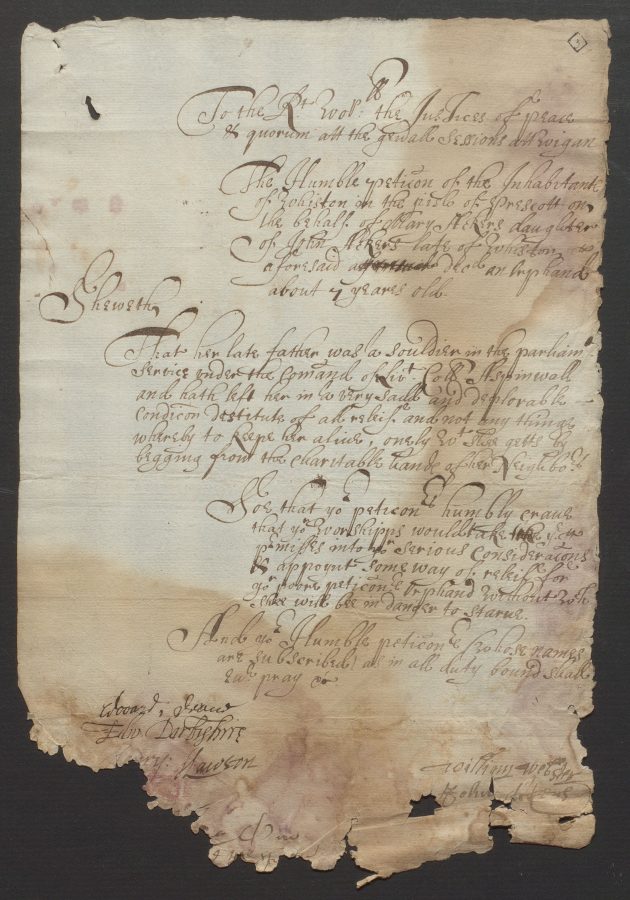 To the Rt Worpll the Justices of peace
& quorum att the genall Sessions att Wigan
The Humble peticon of the Inhabitants
of Whiston in the pish of Prescott on
the behalf of Mary Akers daughter
of John Akers late of Whiston
aforesaid decd an orphand
about 7 yeares old
Sheweth
That her late father was a souldier in the parliamt
service under the Comand of Livt Coll Aspinwall
and hath left her in a very sadd and deplorable
condicon destitute of all releiff and not any thinge
whereby to keepe her alive, onely wt shee getts by
begging from the charitable hands of her Neighbors
Soe that yor peticonrs humbly crave
that yor Worshipps would take the
pmisses into yor serious Consideracons
& appoynt some way of releiff for
yor poore peticonr Orphand without wch
shee will bee in danger to starve.
And yor Humble peticonrs (whose names
are subscribed) as in all duty bound shall
ever pray &c
Edward
Edw Darbyshire
Lawson
William Webster
John